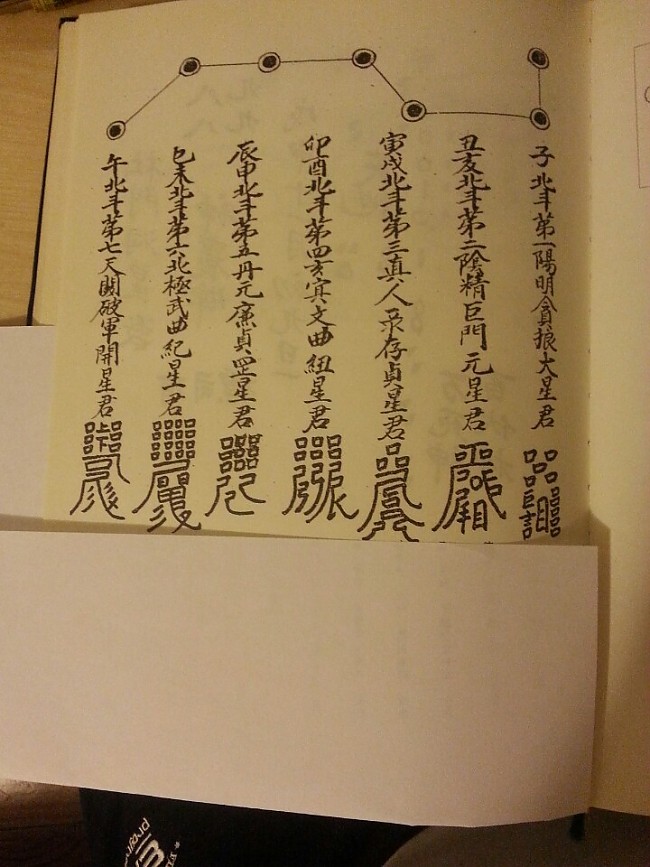 子北斗第一陽明貪狼大星君
丑亥北斗第二陰精巨門元星君
寅戌北斗第三真人录存貞星君
卯酉北斗第四玄㝠文曲紐星君
辰申北斗第五丹元廉貞罡星君
巳未北斗第六北極武曲紀星君
午北斗第七天關破軍開星君